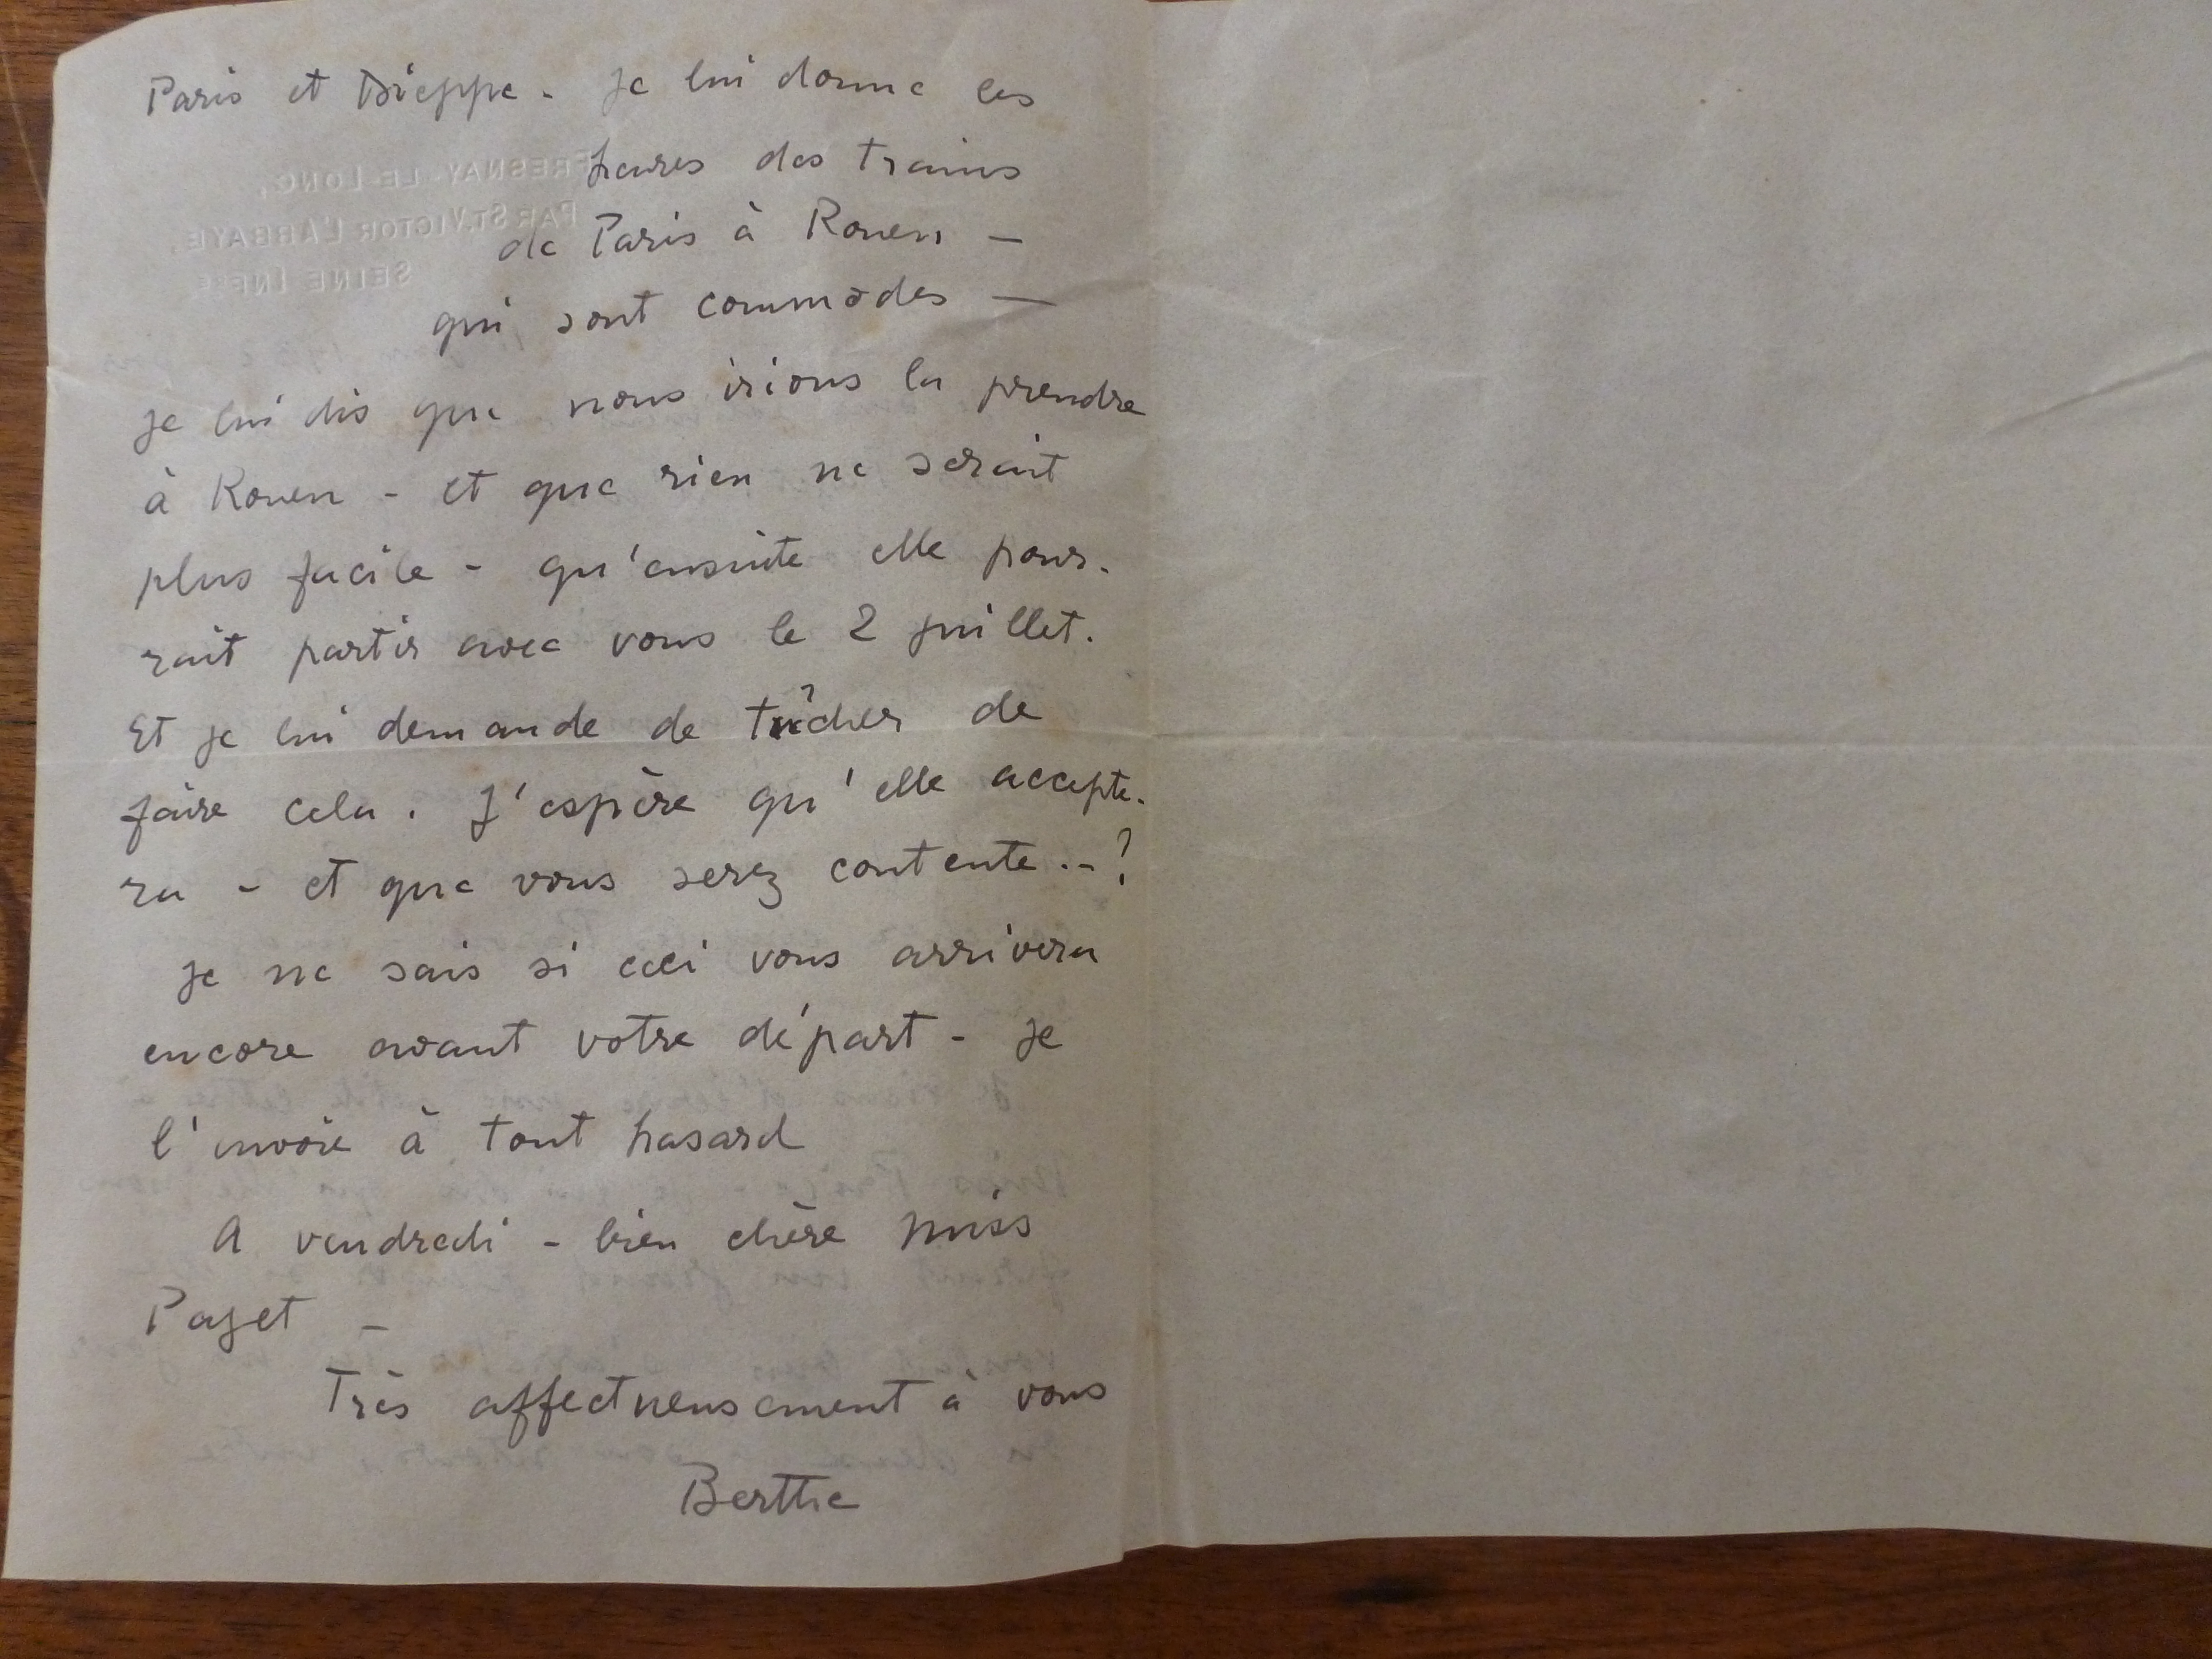 Paris et Dieppe - je lui donne les
heures des trains
de Paris à Rouen -
qui sont commodes -
je lui dis que nous irions la prendre
à Rouen - et que rien ne serait
plus facile - qu'ensuite elle pour-
rait partir avec vous le 2 juillet.
Et je lui demande de tâcher de
faire cela. J'espère qu'elle accepte-
ra - et que vous serez contente..-?
je ne sais si ceci vous arrivera
encore avant votre départ - je
l'envoie à tout hasard
A vendredi - bien chère Miss
Paget -
Très affectueusement à vous
Berthe
FRESNAY-LE-LONG,
PAR ST. VICTOR L'ABBAYE,
SEINE INFRE